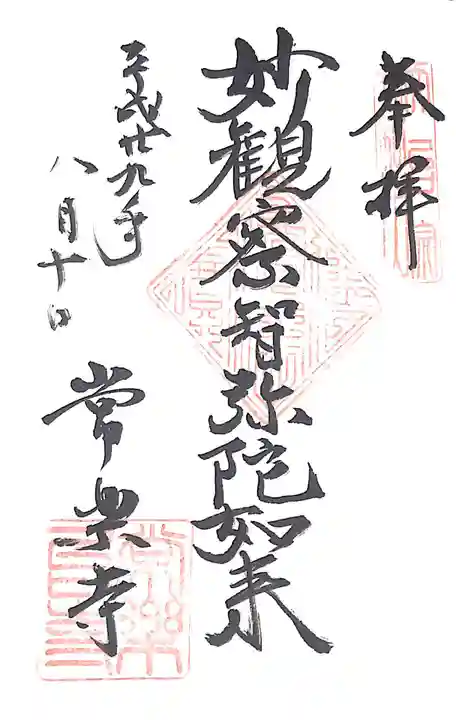 奉拝
妙觀察智弥陀如来
平成廿九年
八月十日
常楽寺